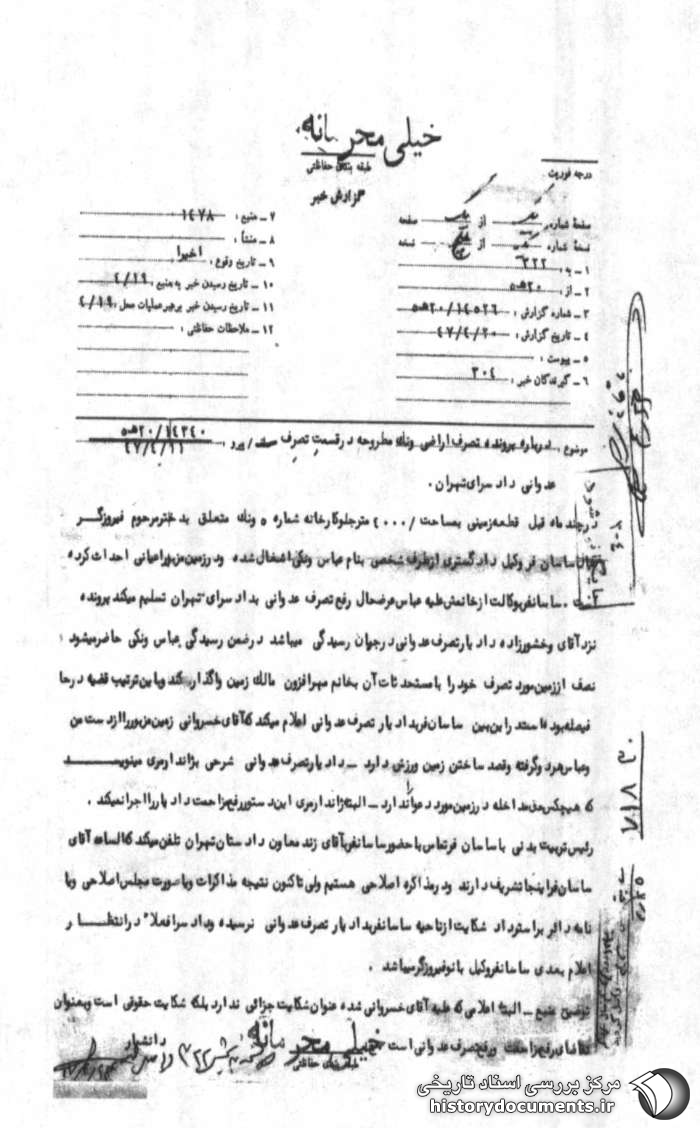 خیلی محرمانه
طبقه بندی حفاظتی
گزارش خبر
درجه فوریت
صفحه شماره از صفحه
نسخه شماره از نسخه
۱ ـ به : ۳۲۲
۲ ـ از : ۲۰ ه‍ ۵
۳ ـ شماره گزارش : ۲۰/۱۴۵۲۶ ه‍ ۵
۴ ـ تاریخ گزارش : ۴۷/۴/۲۰
۵ ـ پیوست :
۶ ـ گیرندگان خبر : ۳۰۴
۷ ـ منبع : ۱۴۷۸
۸ ـ منشأ :
۹ ـ تاریخ وقوع : اخیرا
۱۰ ـ تاریخ رسیدن خبر به منبع : ۴/۱۹
۱۱ ـ تاریخ رسیدن خبر برهبر عملیات محل : ۴/۱۹
۱۲ ـ ملاحظات حفاظتی :
موضوع : درباره پرونده تصرف اراضی ونک مطروحه در قسمت تصرف
۲۰/۱۴۳۴۰ ه‍ ۵
۴۷/۴/۱۱
عدوانی دادسرای تهران .
چند ماه قبل قطعه زمینی بمساحت /۴۰۰۰ متر جلو کارخانه شماره ۵ ونک متعلق بدختر مرحوم فیروزگر
ساسان فر وکیل دادگستری از طرف شخصی بنام عباس ونکی اشغال شده و در زمین مزبور اعیانی احداث کرده
است . ساسانفر بوکالت از خانمش علیه عباس عرضحال رفع تصرف عدوانی بدادسرای تهران تسلیم میکند پرونده
نزد آقای وخشورزاده دادیار تصرف عدوانی در جریان رسیدگی میباشد در ضمن رسیدگی عباس ونکی حاضر میشود
نصف از زمین مورد تصرف خود را با مستحدثات آن بخانم مهرافزون مالک زمین واگذار کند و باین ترتیب قضیه در حال
فیصله بوده است در این بین ساسان فر بدادیار تصرف عدوانی اعلام میکند که آقای خسروانی زمین مزبور را از دست من
و عباس هردو گرفته و قصد ساختن زمین ورزش دارد ـ دادیار تصرف عدوانی شرحی بژاندارمری مینویسد
که هیچکس حق مداخله در زمین مورد دعوا ندارد ـ البته ژاندارمری این دستور رفع مزاحمت دادیار را اجرا نمیکند .
رئیس تربیت بدنی با ساسان فر تماس با حضور ساسانفر بآقای زند معاون دادستان تهران تلفن میکند که الساعه آقای
ساسان فر اینجا تشریف دارند و در مذاکره اصلاحی هستیم ولی تاکنون نتیجه مذاکرات و یا صورت مجلس اصلاحی و یا
نامه دائر بر استرداد شکایت از ناحیه ساسانفر بدادیار تصرف عدوانی نرسیده و دادسرا فعلاً در انتظار
اعلام بعدی ساسانفر وکیل بانو فیروزگر میباشد .
توضیح منبع ـ البته اعلامی که علیه آقای خسروانی شده عنوان شکایت جزائی ندارد بلکه شکایت حقوقی است و بعنوان
تقاضای رفع مزاحمت و رفع تصرف عدوانی است
خیلی محرمانه
طبقه بندی حفاظتی
دانشیار
مرکز بررسی اسناد تاریخی
historydocuments.ir